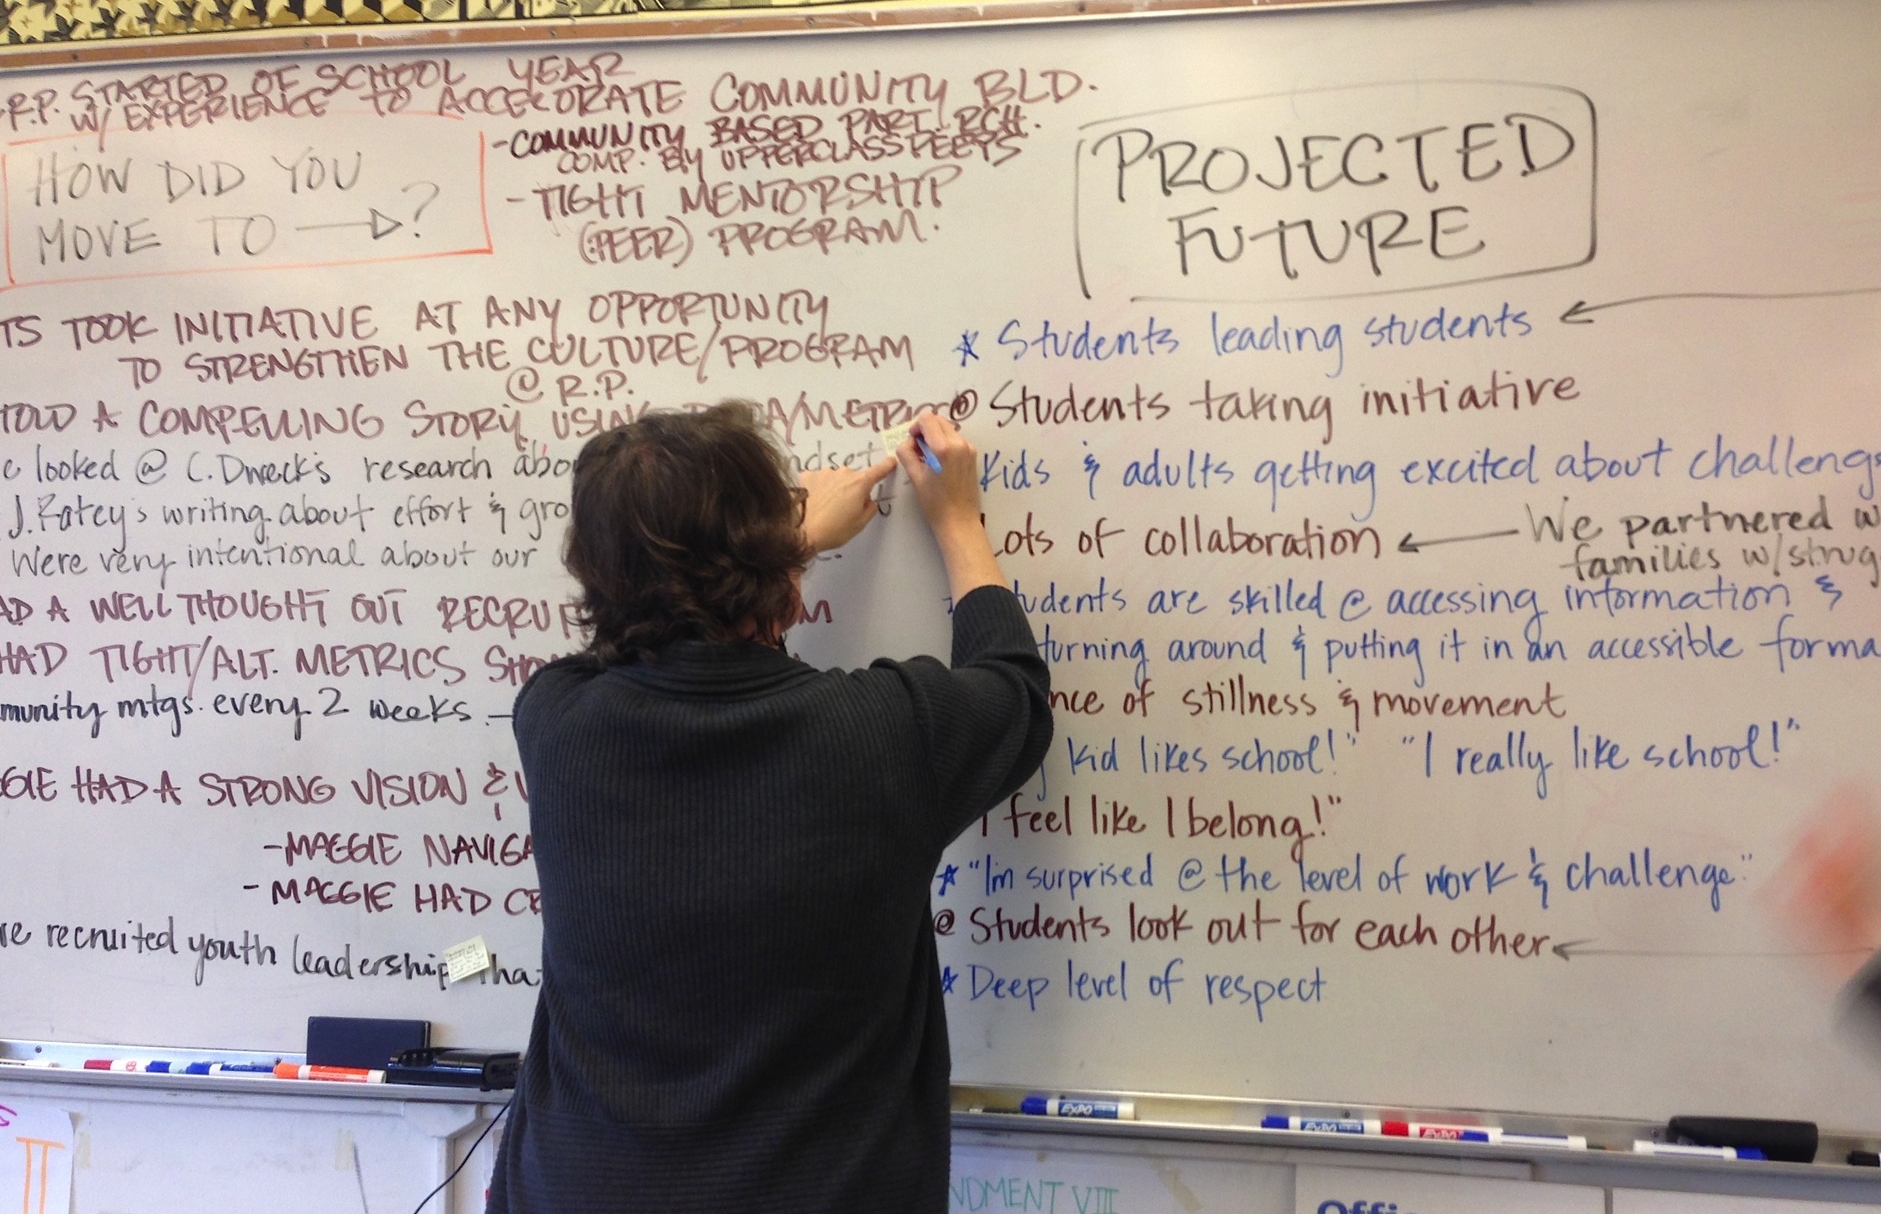 R.P. STARTED OF SCHOOL YEAR
W/ EXPERIENCE TO ACCELORATE COMMUNITY BLD.
HOW DID YOU
MOVE TO →?
- COMMUNITY BASED PART. RCH.
COMP. BY UPPERCLASS PEEPS
- TIGHT MENTORSHIP
(PEER) PROGRAM.
TS TOOK INITIATIVE AT ANY OPPORTUNITY
TO STRENGTHEN THE CULTURE/PROGRAM
@ R.P.
TOLD A COMPELLING STORY USING DATA/METRICS
looked @ C. Dweck's research abo ndset
J. Ratey's writing about effort & gro
Were very intentional about our
AD A WELL THOUGHT OUT RECRU M
HAD TIGHT/ALT. METRICS SHO
munity mtgs. every 2 weeks –
GIE HAD A STRONG VISION &
- MAGGIE NAVIGA
- MAGGIE HAD CR
re recruited youth leadership tha
PROJECTED
FUTURE
* Students leading students ←
@ Students taking initiative
Kids & adults getting excited about challenge
Lots of collaboration ← We partnered w
families w/ strug
* Students are skilled @ accessing information &
turning around & putting it in an accessible forma
nce of stillness & movement
y kid likes school!" "I really like school!"
"I feel like I belong!"
* "I'm surprised @ the level of work & challenge"
@ Students look out for each other ←
* Deep level of respect
EXPO
NDMENT VIII
Offic
II